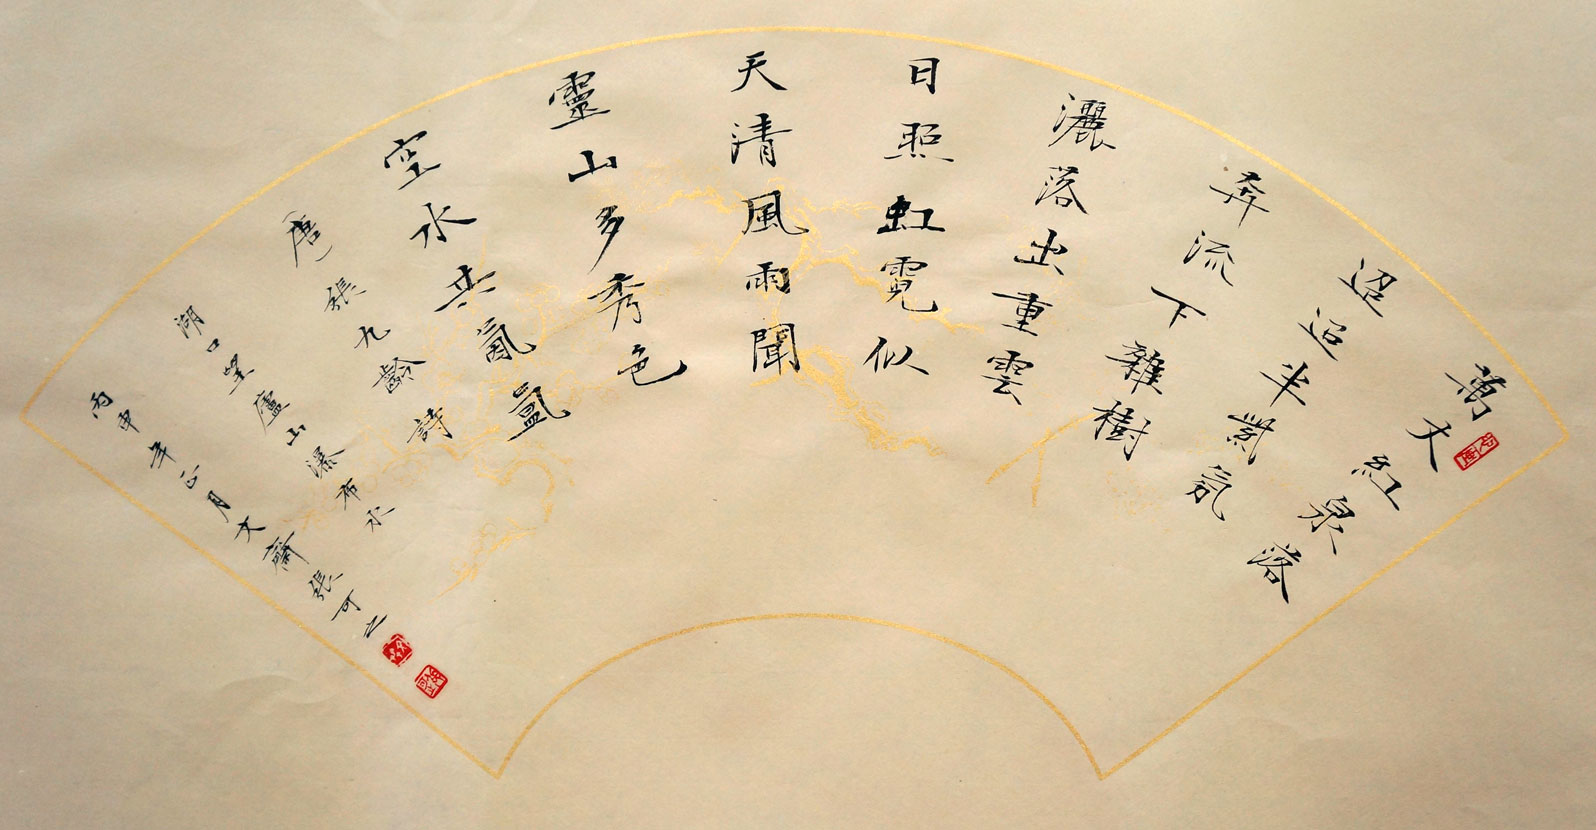 萬丈紅泉落
迢迢半紫氛
奔流下雜樹
灑落出重雲
日照虹霓似
天清風雨聞
靈山多秀色
空水共氤氳
唐張九齡詩
湖口望廬山瀑布水
丙申年正月文齋張可之